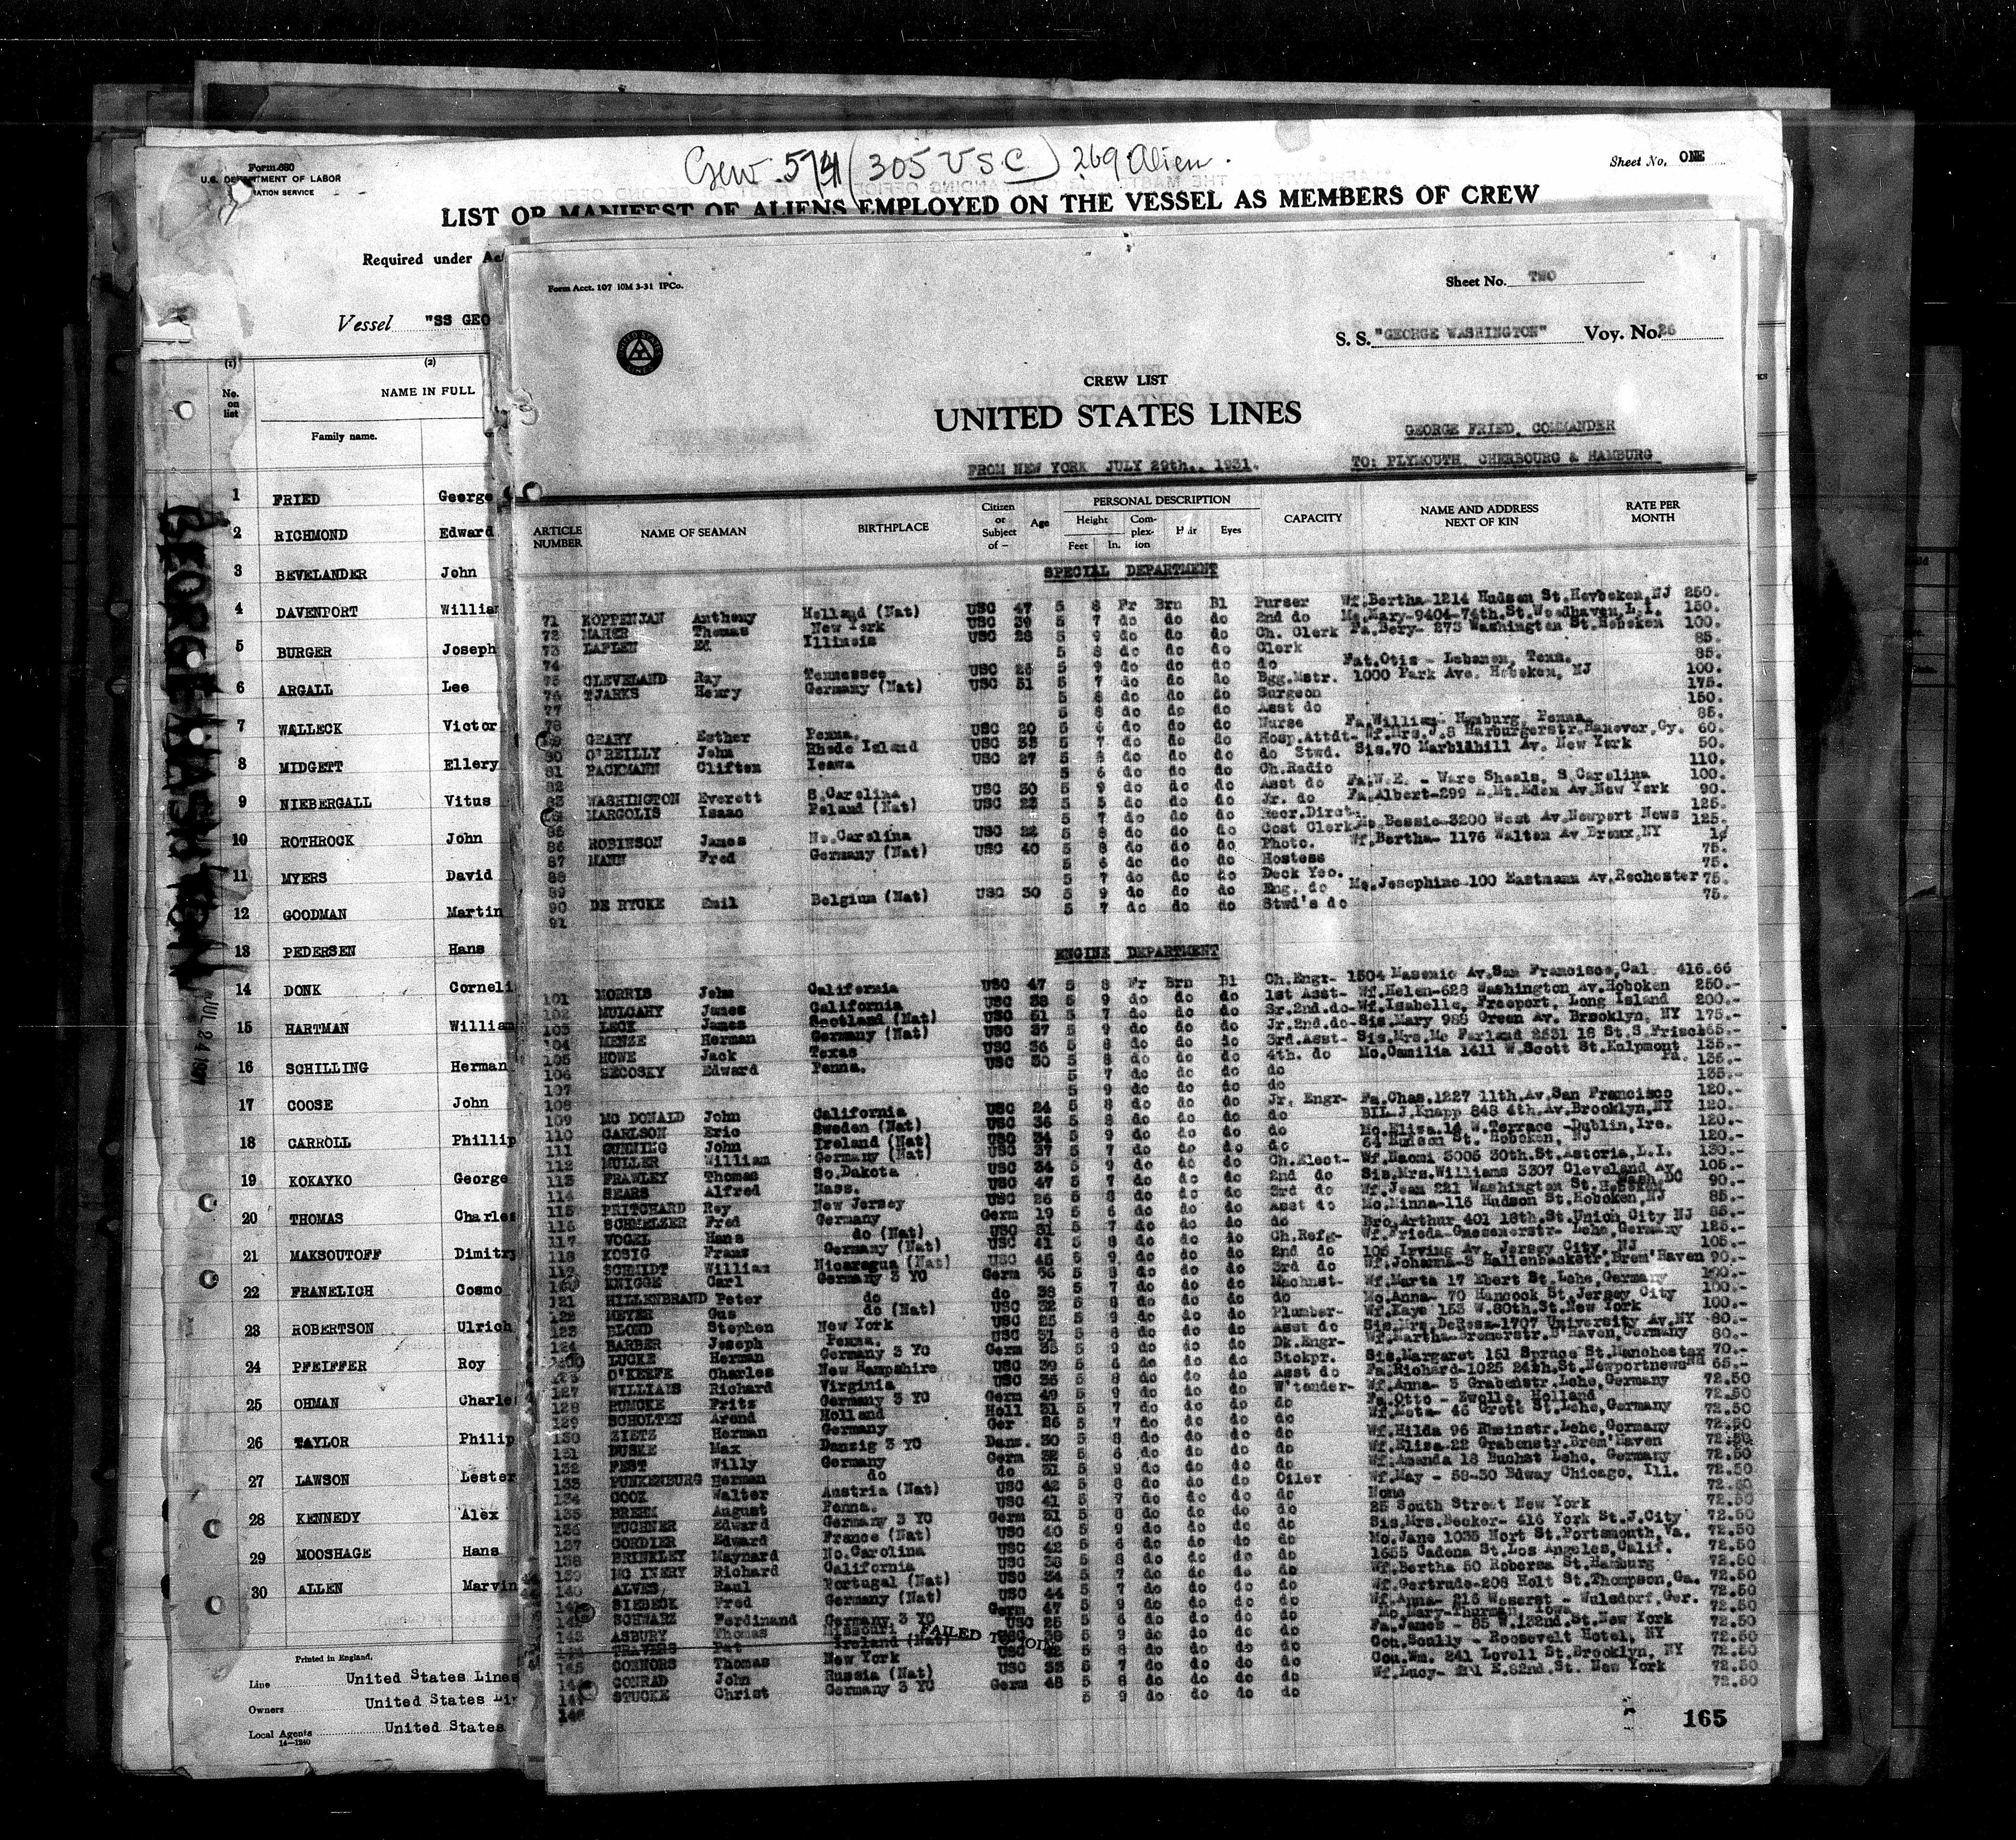 Crew 574 (305 USC) 269 Alien.
Form 680
U.S. DEPARTMENT OF LABOR
Sheet No. ONE
LIST OR MANIFEST OF ALIENS EMPLOYED ON THE VESSEL AS MEMBERS OF CREW
Required under Ac
Vessel "SS GEO
(1) (2)
No. on list
NAME IN FULL
Family name.
1 FRIED George
2 RICHMOND Edward
3 BEVELANDER John
4 DAVENPORT Willia
5 BURGER Joseph
6 ARGALL Lee
7 WALLECK Victor
8 MIDGETT Ellery
9 NIEBERGALL Vitus
10 ROTHROCK John
11 MYERS David
12 GOODMAN Martin
13 PEDERSEN Hans
14 DONK Corneli
15 HARTMAN William
16 SCHILLING Herman
17 COOSE John
18 CARROLL Phillip
19 KOKAYKO George
20 THOMAS Charles
21 MAKSOUTOFF Dimitry
22 FRANELICH Cosmo
23 ROBERTSON Ulrich
24 PFEIFFER Roy
25 OHMAN Charle
26 TAYLOR Philip
27 LAWSON Lester
28 KENNEDY Alex
29 MOOSHAGE Hans
30 ALLEN Marvin
Printed in England.
Line United States Lines
Owners United States Li
Local Agents United States
14-1240
GEORGE WASHINGTON
JUL 24 1931
Form Acct. 107 10M 3-31 IPCo.
Sheet No. TWO
S. S. "GEORGE WASHINGTON" Voy. No. 26
CREW LIST
UNITED STATES LINES
GEORGE FRIED, COMMANDER
FROM NEW YORK JULY 29th., 1931. TO: PLYMOUTH CHERBOURG & HAMBURG
ARTICLE NUMBER
NAME OF SEAMAN
BIRTHPLACE
Citizen or Subject of —
Age
PERSONAL DESCRIPTION
Height Feet In.
Complexion
Hair
Eyes
CAPACITY
NAME AND ADDRESS NEXT OF KIN
RATE PER MONTH
SPECIAL DEPARTMENT
71 KOPPENJAN Anthony Holland (Nat) USC 47 5 8 Fr Brn Bl Purser Wf.Bertha-1214 Hudson St.Hovboken,NJ 250.
72 MAHER Thomas New York USC 39 5 7 do do do 2nd do Mo.Mary-9404-74th.St.Woodhaven,L.I. 150.
73 LAFLEN Ed. Illinois USC 28 5 9 do do do Ch. Clerk Fa.Bery- 273 Washington St.Hoboken 100.
74 5 8 do do do Clerk 85.
75 CLEVELAND Ray Tennessee USC 26 5 9 do do do do Fat.Otis - Lebanon, Tenn. 85.
76 TJARKS Henry Germany (Nat) USC 51 5 7 do do do Bgg.Mstr. 1000 Park Ave. Hoboken, NJ 100.
77 5 8 do do do Surgeon 175.
78 5 8 do do do Asst do 150.
79 GEARY Esther Penna. USC 20 5 6 do do do Nurse Fa.William- Hamburg, Penna. 85.
80 O'REILLY John Rhode Island USC 33 5 7 do do do Hosp.Attdt- Wf.Mrs.J.8 Harburgerstr.Hanover,Gy. 60.
81 PACKMANN Clifton Iowa USC 27 5 8 do do do do Stwd. Sis.70 Marblhill Av. New York 50.
82 5 6 do do do Ch.Radio 110.
83 WASHINGTON Everett S.Carolina USC 30 5 9 do do do Asst do Fa.W.E. - Ware Shoals, S.Carolina 100.
84 MARGOLIS Isaac Poland (Nat) USC 23 5 5 do do do Jr. do Fa.Albert-299 E.Mt.Eden Av.New York 90.
85 5 7 do do do Recr.Direct- 125.
86 ROBINSON James No.Carolina USC 22 5 8 do do do Cost Clerk Mo.Bessie-3200 West Av.Newport News 125.
87 MANN Fred Germany (Nat) USC 40 5 8 do do do Photo. Wf.Bertha- 1176 Walton Av.Bronx,NY
88 5 6 do do do Hostess 75.
89 5 7 do do do Deck Yeo. 75.
90 DE RYCKE Emil Belgium (Nat) USC 30 5 9 do do do Eng. do Mo.Josephine-100 Eastmann Av.Rochester 75.
91 5 7 do do do Stwd's do 75.
ENGINE DEPARTMENT
101 MORRIS John California USC 47 5 8 Fr Brn Bl Ch.Engr- 1504 Masonic Av.San Francisco,Cal. 416.66
102 MULCAHY James California USC 38 5 9 do do do 1st Asst- Wf.Helen-628 Washington Av.Hoboken 250.-
103 LECK James Scotland (Nat) USC 51 5 7 do do do Sr.2nd.do-Wf.Isabelle, Freeport, Long Island 200.-
104 MENZE Herman Germany (Nat) USC 37 5 9 do do do Jr.2nd.do-Sis.Mary 986 Green Av. Brooklyn, NY 175.-
105 HOWE Jack Texas USC 36 5 8 do do do 3rd.Asst- Sis.Mrs.Mc Farland 2531 18 St.S.Frisco
106 SECOSKY Edward Penna. USC 30 5 8 do do do 4th. do Mo.Camilia 1411 W.Scott St.Kulpmont Pa. 135.-
107 5 7 do do do do 135.-
108 5 9 do do do do 135.-
109 MC DONALD John California USC 24 5 8 do do do Jr. Engr- Fa.Chas.1227 11th.Av.San Francisco 120.-
110 CARLSON Eric Sweden (Nat) USC 36 5 8 do do do do BIL J.Knapp 848 4th.Av.Brooklyn,NY 120.-
111 GUNNING John Ireland (Nat) USC 34 5 9 do do do do Mo.Eliza.14 W.Terrace -Dublin,Ire. 120.-
112 MULLER William Germany (Nat) USC 37 5 7 do do do do 64 Hudson St. Hoboken, NJ 120.-
113 FRAWLEY Thomas So.Dakota USC 34 5 9 do do do Ch.Elect- Wf.Naomi 3005 30th.St.Astoria,L.I. 130.-
114 SEARS Alfred Mass. USC 47 5 7 do do do 2nd do Sis.Mrs.Williams 3207 Cleveland Av. Wash.DC 105.-
115 PRITCHARD Roy New Jersey USC 26 5 8 do do do 3rd do Wf.Jean 221 Washington St.Hoboken 90.-
116 SCHMELZER Fred Germany Germ 19 5 6 do do do Asst do Mo.Minna-116 Hudson St.Hoboken,NJ 85.-
117 VOGEL Hans do (Nat) USC 31 5 7 do do do do Bro.Arthur 401 18th.St.Union City NJ 85.-
118 KOSIG Frans Germany (Nat) USC 41 5 8 do do do Ch.Refg- Wf.Frieda- Lehe, Germany 125.-
119 SCHMIDT William Nicaragua (Nat) USC 45 5 9 do do do 2nd do 105 Irving Av. Jersey City, NJ 105.-
120 KNIGGE Carl Germany 3 YO Germ 36 5 8 do do do 3rd do Wf.Johanna-3 Hallenbackstr.Brem'Haven 90.-
121 HILLENBRAND Peter do do 38 5 7 do do do Machnst- Wf.Marta 17 Ebert St.Lehe,Germany 100.-
122 MEYER Gus do (Nat) USC 32 5 8 do do do do Mo.Anna- 70 Hancock St.Jersey City 100.-
123 BLOND Stephen New York USC 25 do do do Plumber- Wf.Kaye 153 W.80th.St.New York 100.-
124 BARBER Joseph Penna. USC 31 do do do Asst do Sis.Mrs.DeRosa-1707 University Av.NY 80.-
LUCKE Herman Germany 3 YO Germ 35 do do do Dk.Engr- Wf.Martha-Bremerstr.B'Haven,Germany 80.-
O'KEEFE Charles New Hampshire USC 39 do do do Stokpr. Sis.Margaret 161 Spruce St.Manchester NH 70.-
127 WILLIAMS Richard Virginia USC 35 do do do Asst do Fa.Richard-1025 24th.St.Newportnews 65.-
128 RUMCKE Fritz Germany 3 YO Germ 49 do do do W'tender- Wf.Anna- 3 Grabenstr.Lehe,Germany 72.50
129 SCHOLTEN Arend Holland Holl 31 do do do do Fa.Otto - Zwolle, Holland 72.50
130 ZIETZ Herman Germany Ger 26 do do do do Wf.Meta- 46 Grott St.Lehe,Germany 72.50
131 DUSKE Max Danzig 3 YO Danz. 30 do do do do Wf.Hilda 96 Rheinstr.Lehe,Germany 72.50
132 FEST Willy Germany Germ 32 do do do do Wf.Elisa-22 Grabenstr.Brem'Haven 72.50
133 FUNKENBURG Herman do do 31 do do do do Wf.Amanda 18 Buchst Lehe, Germany 72.50
134 COOK Walter Austria (Nat) USC 42 do do do Oiler Wf.May - 58-30 Bdway Chicago, Ill. 72.50
135 BREHM August Penna. USC 41 do do do do None 72.50
136 TUCHNER Edward Germany 3 YO Germ 31 do do do do 25 South Street New York 72.50
137 CORDIER Edward France (Nat) USC 40 do do do do Sis.Mrs.Becker- 416 York St.J.City 72.50
138 BRINKLEY Maynard No.Carolina USC 42 do do do do Mo.Jane 1035 Nort St.Portsmouth,Va. 72.50
139 MC INERY Richard California USC 38 do do do do 1655 Cadena St.Los Angeles,Calif. 72.50
140 ALVES Raul Portugal (Nat) USC 34 do do do do Wf.Bertha 50 Robersa St.Hamburg 72.50
SIEBECK Fred Germany (Nat) USC 44 do do do do Wf.Gertrude-208 Holt St.Thompson,Ga. 72.50
SCHWARZ Ferdinand Germany 3 YO Germ 47 do do do do Wf.Anna- 216 Weserst - Wulsdorf,Ger. 72.50
143 ASBURY Thomas Missouri USC 25 do do do do Mo.Mary-Thurman, Iowa 72.50
144 TRAVERS Pat Ireland (Nat) FAILED TO JOIN Fa.James - 85 W.132nd.St.New York 72.50
145 CONNORS Thomas New York USC do do do do Cou.Scully - Roosevelt Hotel, NY 72.50
CONRAD John Russia (Nat) USC 35 do do do do Cou.Wm. 241 Lovell St.Brooklyn, NY 72.50
STUCKE Christ Germany 3 YO Germ 48 do do do do Wf.Lucy- E.82nd.St. New York 72.50
148 5 9 do do do do 72.50
165